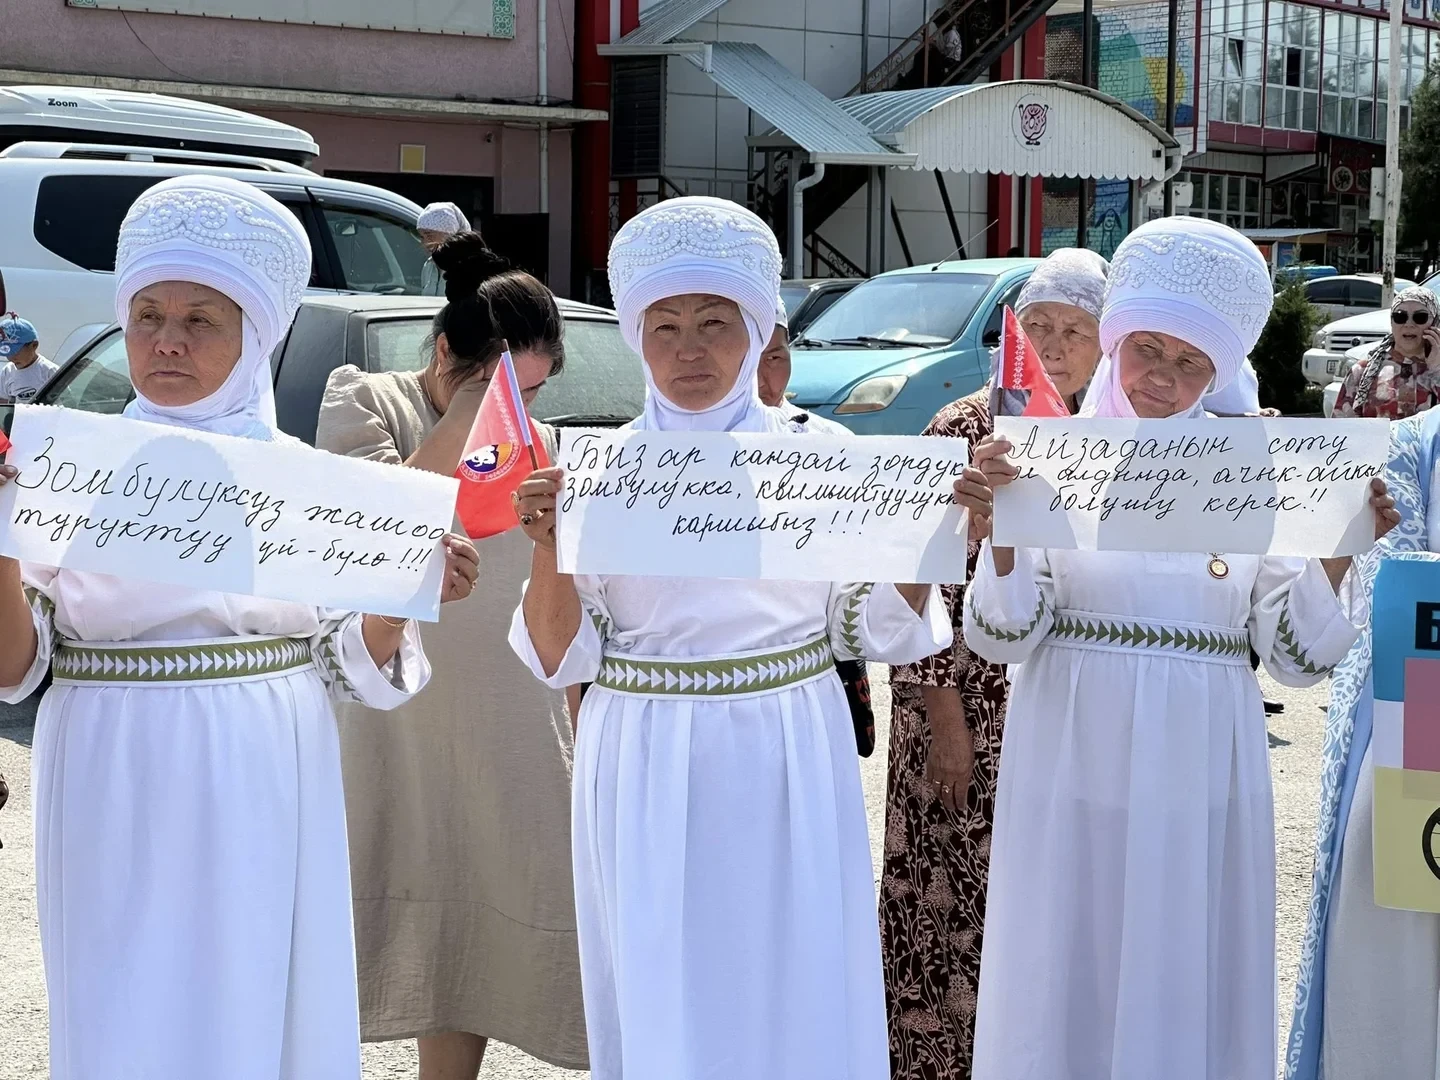 Zoom
Зомбулуксуз жашоо
туруктуу үй-бүлө!!!
Биз ар кандай зордук
зомбулукка, кылмыштуулукка
каршыбыз!!!
Айзаданын соту
эл алдында, ачык-айкын
болушу керек!!